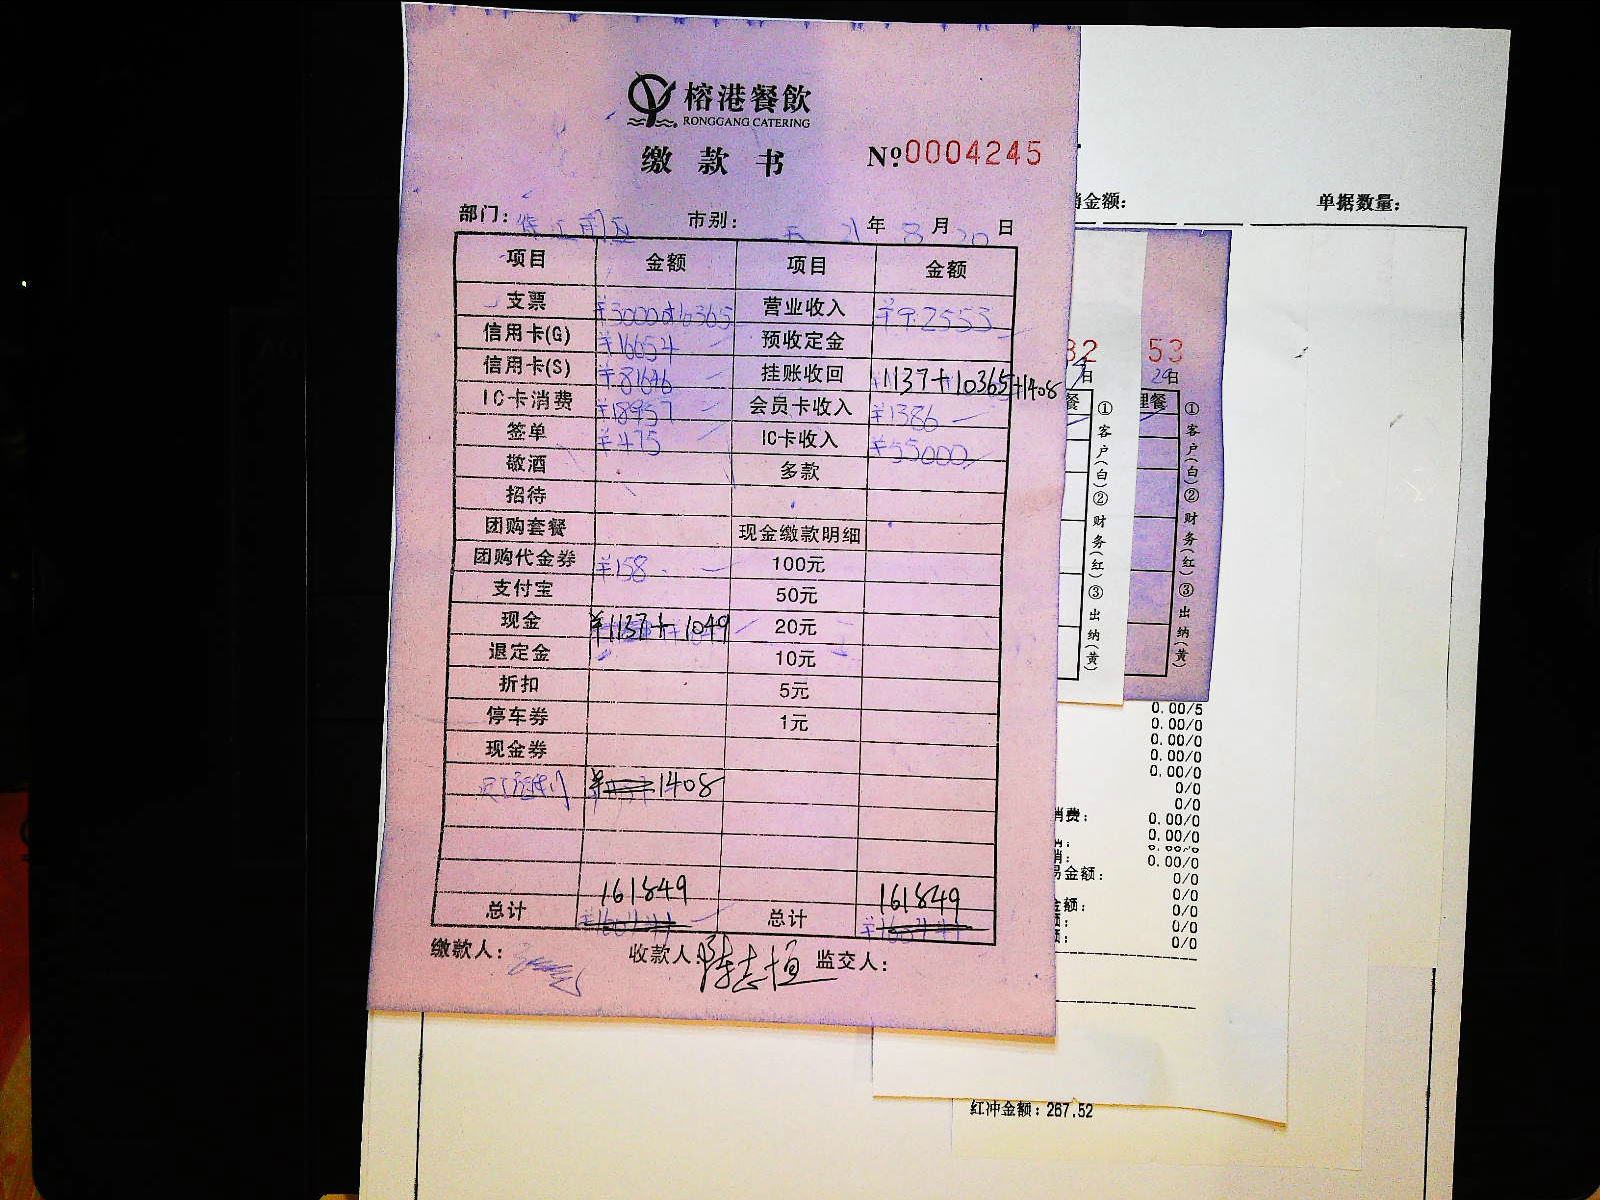 榕港餐飲
RONGGANG CATERING
缴款书 №0004245
部门: 市别: 21年8月20日
项目 金额 项目 金额
支票 ¥30000+10365 营业收入 ¥92553
信用卡(G) ¥16654 预收定金
信用卡(S) ¥81646 挂账收回 1137+10365+1408
IC卡消费 ¥18957 会员卡收入 ¥1386
签单 ¥475 IC卡收入 ¥55000
敬酒 多款
招待
团购套餐 现金缴款明细
团购代金券 ¥158 100元
支付宝 50元
现金 ¥1137+1049 20元
退定金 10元
折扣 5元
停车券 1元
现金券
1408
161849 161849
总计 总计
缴款人: 收款人: 陈志恒 监交人:
金额: 单据数量:
32 53
日 20日
餐 餐
①客户(白)②财务(红)③出纳(黄)
①客户(白)②财务(红)③出纳(黄)
0.00/5
0.00/0
0.00/0
0.00/0
0.00/0
0/0
0/0
消费: 0.00/0
0.00/0
0.00/0
0.00/0
易金额: 0/0
0/0
金额: 0/0
0/0
0/0
红冲金额: 267.52